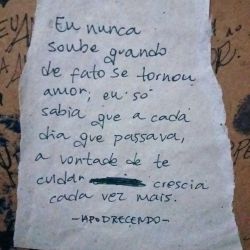 Eu nunca
soube quando
de fato se tornou
amor; eu só
sabia que a cada
dia que passava,
a vontade de te
cuidar crescia
cada vez mais.
-APODRECENDO-